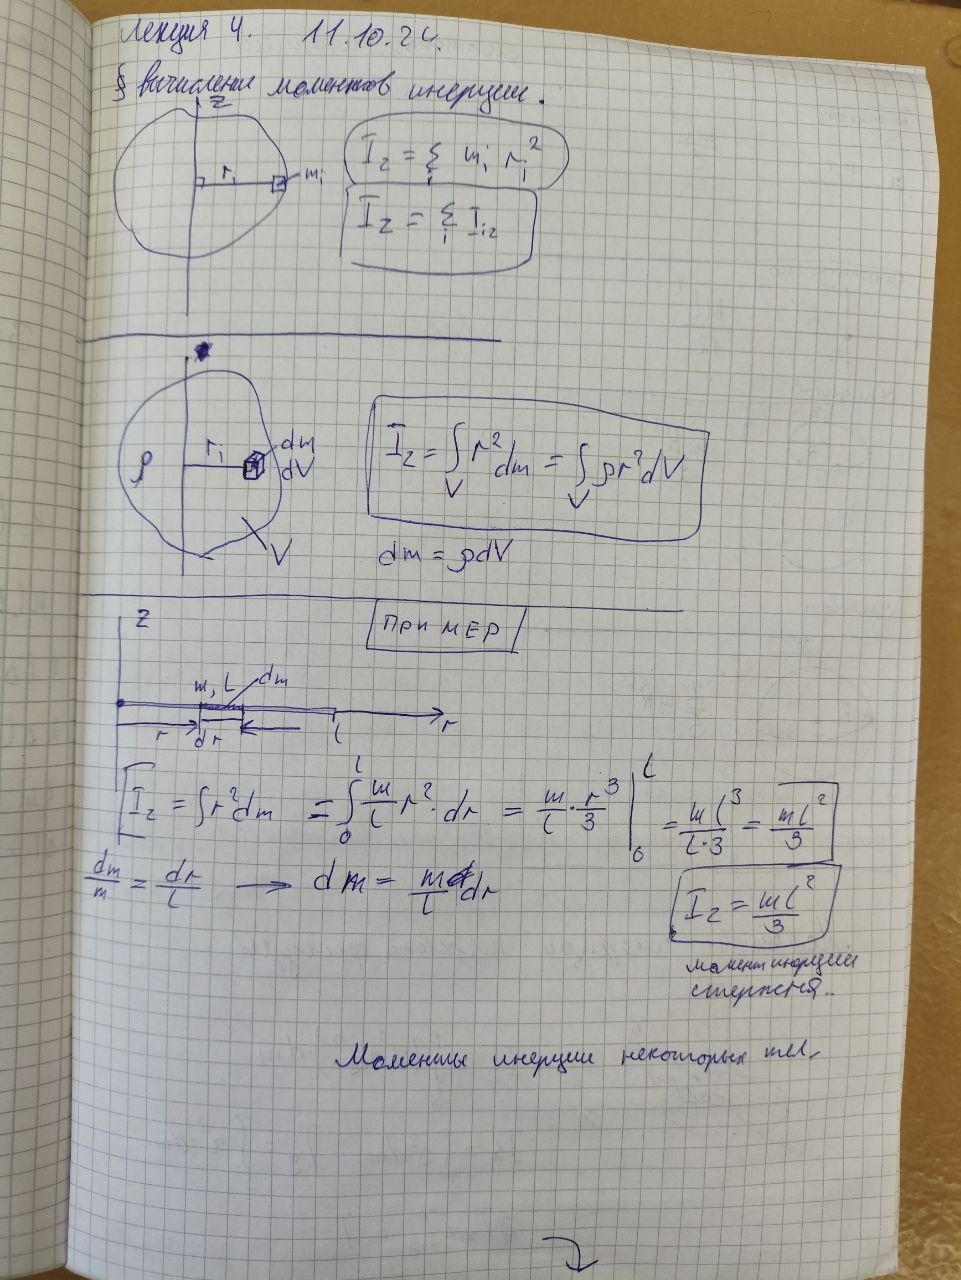 Лекция 4. 11.10.24.
§ Вычисление моментов инерции.
z
r_i m_i
I_z = Σ_i m_i r_i²
I_z = Σ_i I_iz
ρ r_i dm
dV
V
I_z = ∫_V r² dm = ∫_V ρr² dV
dm = ρdV
ПРИМЕР
z
m, l dm
r dr l r
I_z = ∫r²dm = ∫₀^l m/l r² · dr = m/l · r³/3 |₀^l = ml³/l·3 = ml²/3
dm/m = dr/l → dm = m/l dr
I_z = ml²/3
момент инерции
стержня..
Моменты инерции некоторых тел.